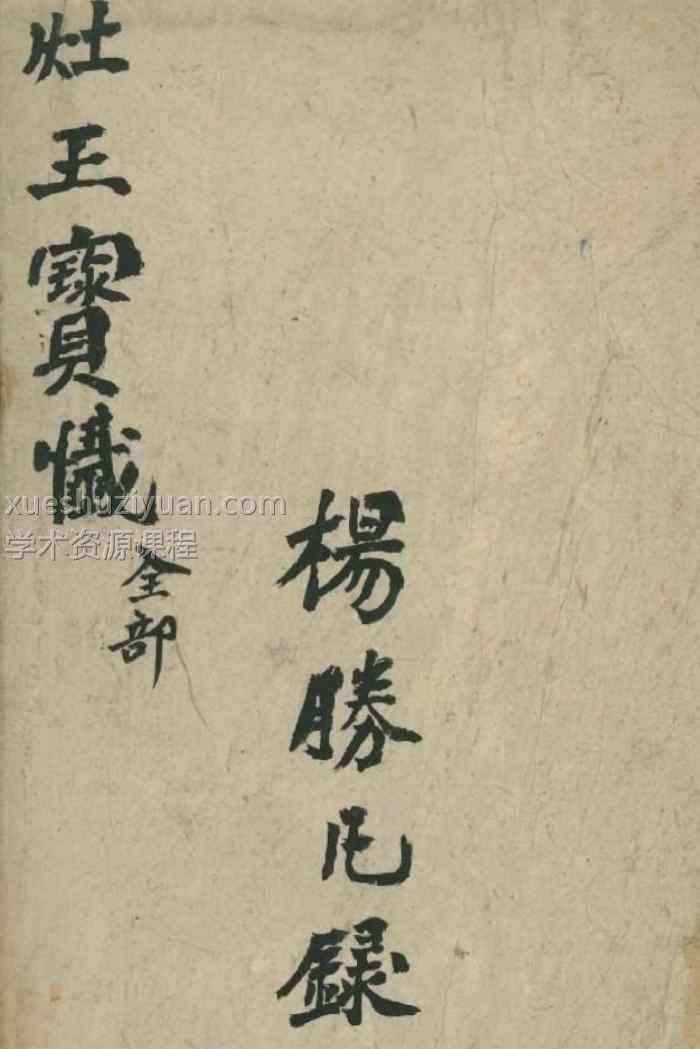 灶王寶懺
全部
楊勝
錄
xueshuziyuan.com
学术资源课程